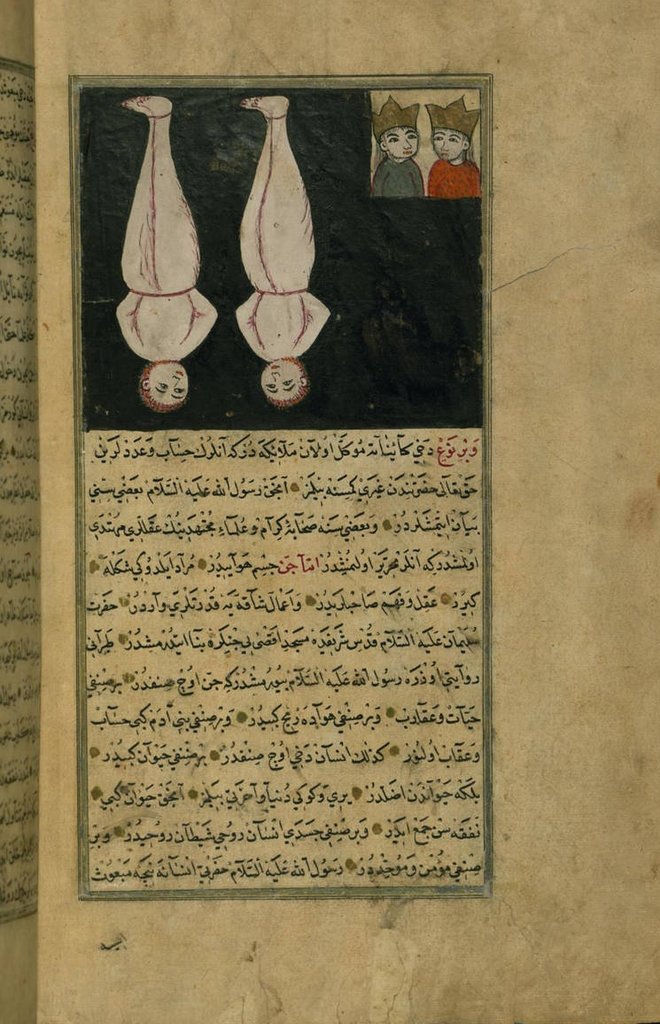 وبر نوع دخي كايناته موكل اولان ملايكه در كه انلرك حساب وعددلريني
حق تعالى حضرتندن غيري كمسنه بيلمز انجق رسول الله عليه السلام بعضي سني
بيان ايتمشلردر وبعضي سنه صحابه كرام وعلماء مجتهدينك عقللري مهتدي
اولمشدر كه انلر تحرير اولنمشدر اما جن جسم هواييدر مراد ايلدوكي شكله
كيرر عقل وفهم صاحبلريدر واعمال شاقه يه قدرتلري واردر حضرت
سليمان عليه السلام قدس شريفده مسجد اقصى يي جنلره بنا ايتدرمشدر طبراني
روايتي اوزره رسول الله عليه السلام بيورمشدر كه جن اوچ صنفدر بر صنفي
حيات وعقارب وبر صنفي هواده ريح كبيدر وبر صنفي بني آدم كبي حساب
وعقاب اولنور كذلك انسان دخي اوچ صنفدر بر صنفي حيوان كبيدر
بلكه حيواندن اضلدر يري وكوكي دنيا واخرتي بيلمز انجق حيوان كبي
نفقه سن جمع ايدر وبر صنفي جسدي انسان روحي شيطان روحيدر وبر
صنفي مؤمن وموحددر رسول الله عليه السلام حضرتي انسانه نيجه مبعوث